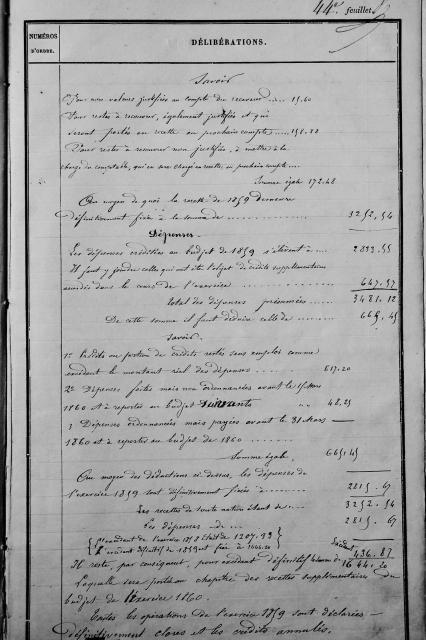 44e feuillet
NUMÉROS
D'ORDRE.
DÉLIBÉRATIONS.
Savoir
Pour non valeurs justifiées au compte du receveur .... 15.60
Pour restes à recouvrer, également justifiés et qui
seront portés en recette au prochain compte .... 156.88
Pour restes à recouvrer non justifiés, à mettre à la
charge du comptable, qui en sera chargé en recette, au prochain compte ....
Somme égale 172.48
Au moyen de quoi la recette de 1859 demeure
définitivement fixée à la somme de .......... 3252.54
Dépenses.
Les dépenses créditées au budget de 1859 s'élèvent à .... 2833.55
Il faut y joindre celles qui ont été l'objet de crédits supplémentaires
accordés dans le cours de l'exercice .......... 647.57
total des dépenses présumées ...... 3481.12
De cette somme il faut déduire celle de ........ 665.45
Savoir.
1° Crédits ou portion de crédits restés sans emploi comme
excédant le montant réel des dépenses ...... 617.20
2° Dépenses faites mais non ordonnancées avant le 15 Mars
1860 et à reporter au budget suivant 48.25
3 Dépenses ordonnancées mais payées avant le 31 Mars
1860 et à reporter au budget de 1860 ......
Somme égale 665.45
Au moyen des déductions ci-dessus, les dépenses de
l'exercice 1859 sont définitivement fixées à ........ 2815.67
Les recettes de toute nature étant de .... 3252.54
Les dépenses de ... 2815.67
L'excédant de l'exercice 1858 était de 1207.33
L'excédant définitif de 1859 est fixé à 1644.20
Excédant 436.87
Il reste, par conséquent, pour excédant définitif la somme de 1644.20
Laquelle sera portée au chapitre des recettes supplémentaires du
budget de l'exercice 1860.
Toutes les opérations de l'exercice 1859 sont déclarées
définitivement closes et les crédits annulés.